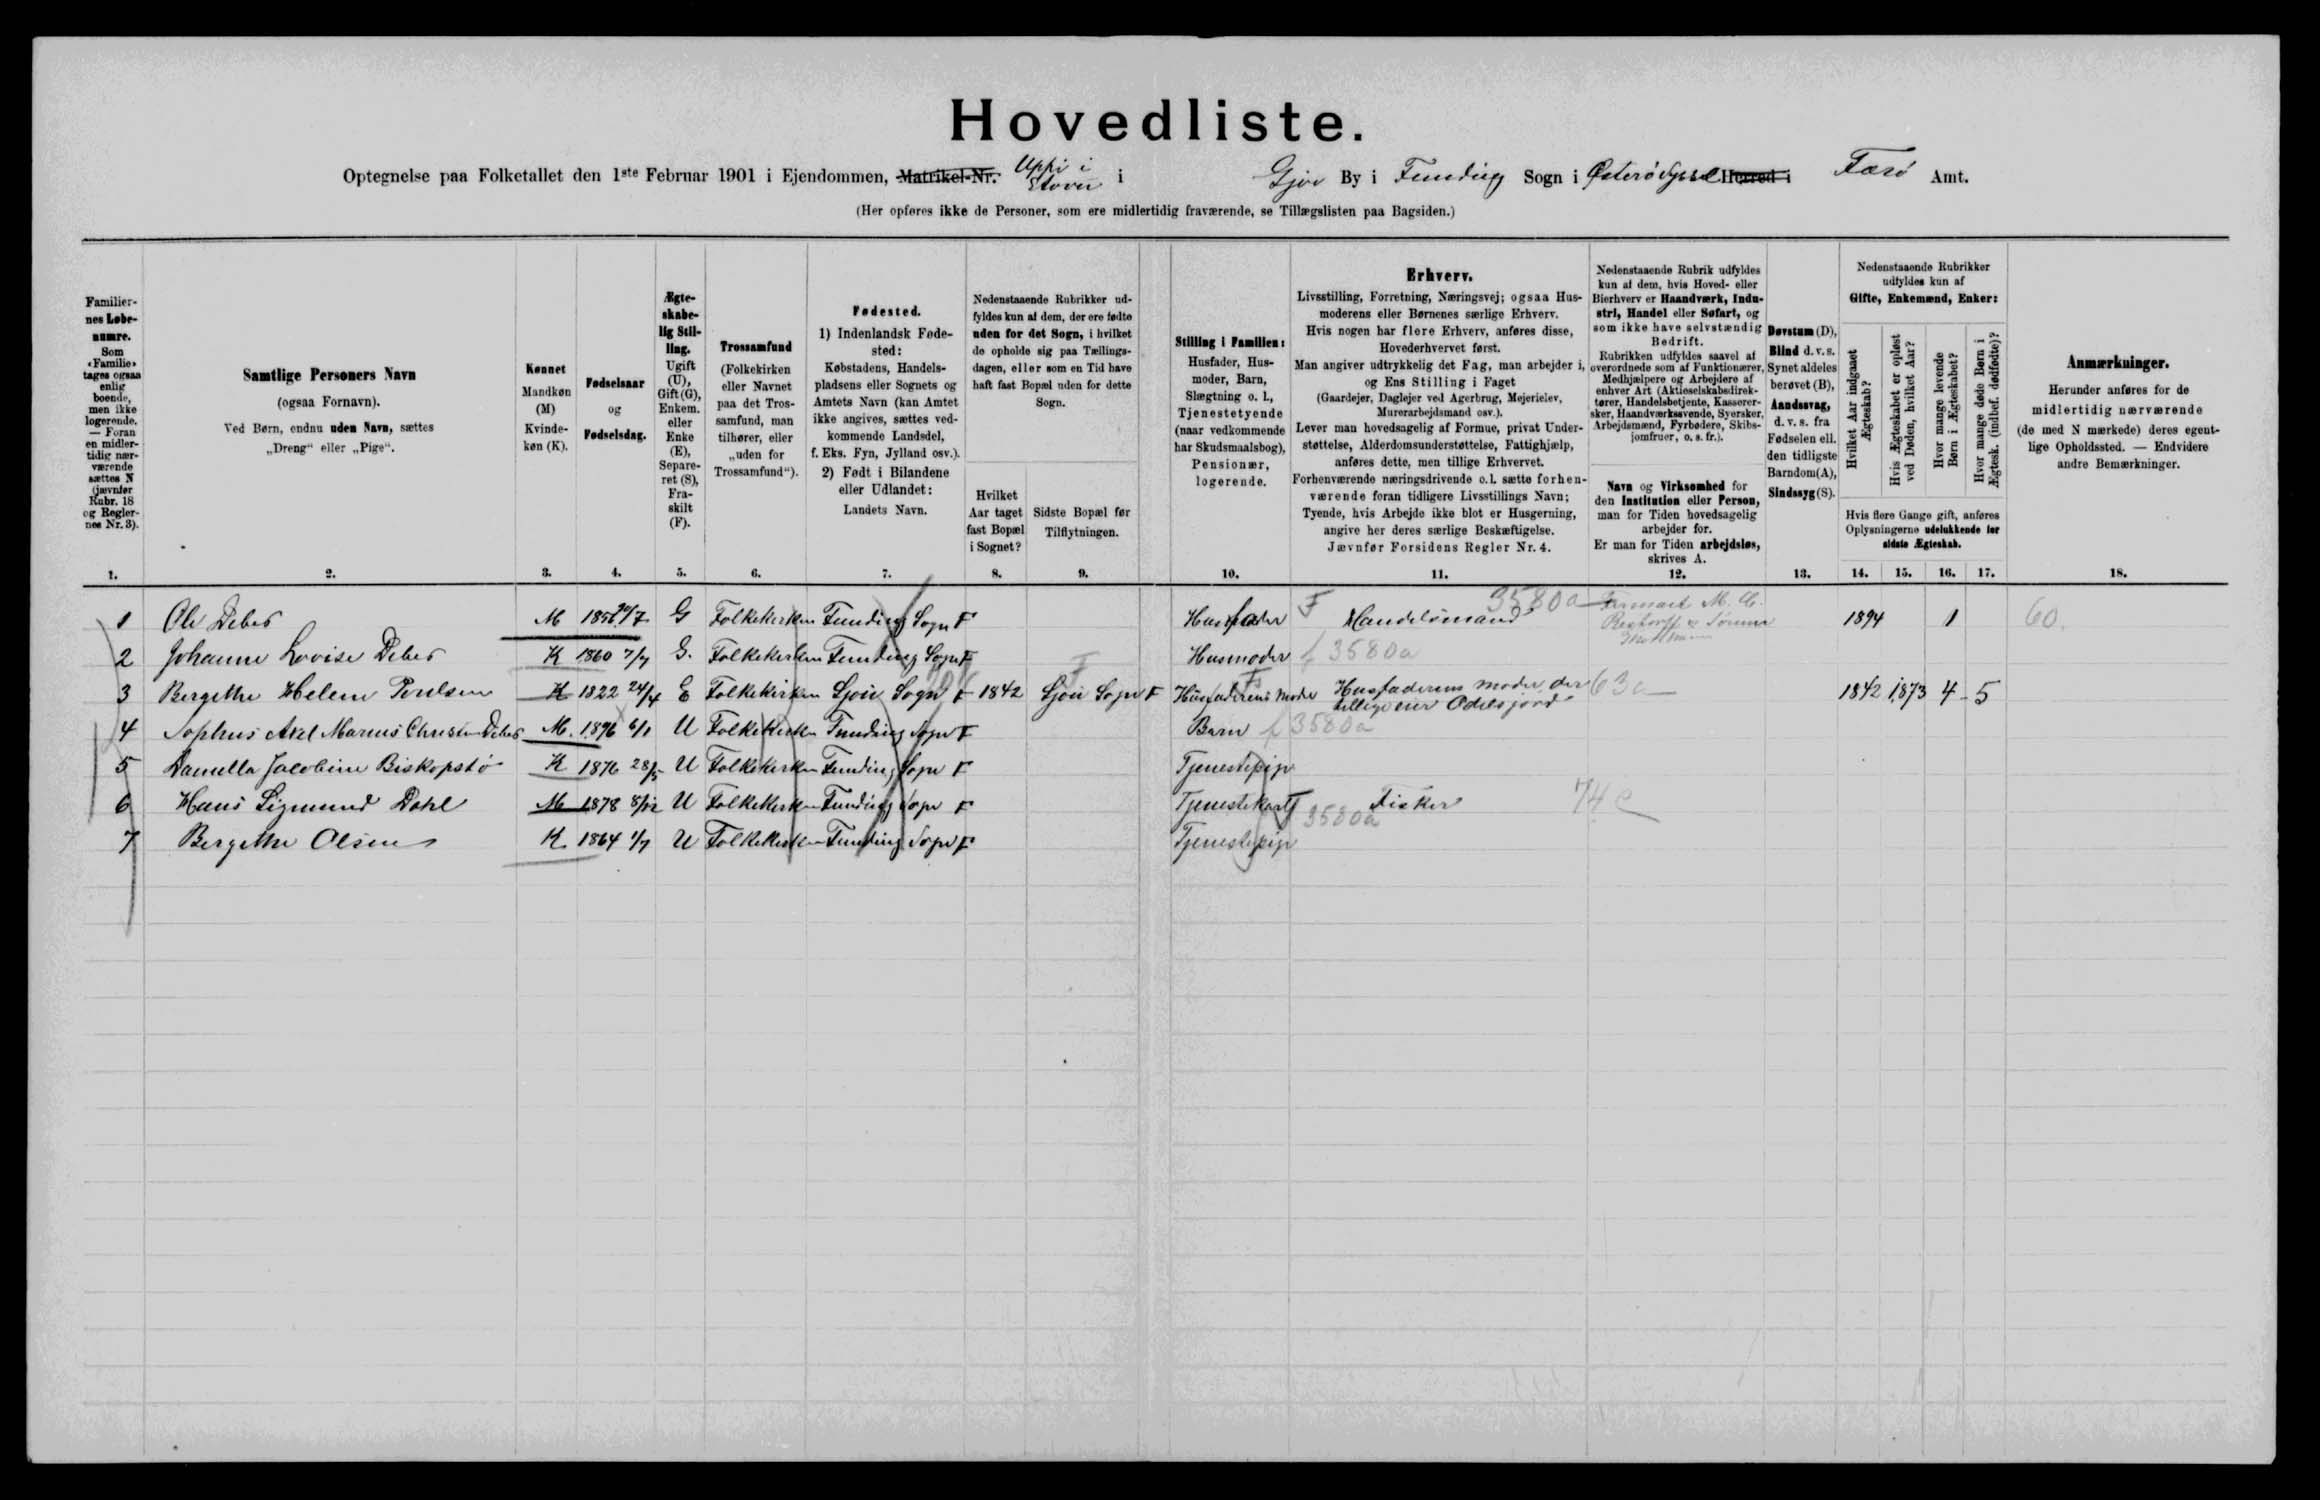 Hovedliste.
Optegnelse paa Folketallet den 1ste Februar 1901 i Ejendommen, Matrikel-Nr. Uppi i Stovu i Gjov By i Funding Sogn i Österö Syssel Herred i Færö Amt.
(Her opføres ikke de Personer, som ere midlertidig fraværende, se Tillægslisten paa Bagsiden.)
Familier-
nes Løbe-
numre.
Som
«Familie»
tages ogsaa
enlig
boende,
men ikke
logerende.
— Foran
en midler-
tidig nær-
værende
sættes N
(jævnfør
Rubr. 18
og Regler-
nes Nr. 3).
Samtlige Personers Navn
(ogsaa Fornavn).
Ved Børn, endnu uden Navn, sættes
„Dreng“ eller „Pige“.
Kønnet
Mandkøn
(M)
Kvinde-
køn (K).
Fødselsaar
og
Fødselsdag.
Ægte-
skabe-
lig Stil-
ling.
Ugift
(U),
Gift (G),
Enkem.
eller
Enke
(E),
Separe-
ret (S),
Fra-
skilt
(F).
Trossamfund
(Folkekirken
eller Navnet
paa det Tros-
samfund, man
tilhører, eller
„uden for
Trossamfund“).
Fødested.
1) Indenlandsk Føde-
sted:
Købstadens, Handels-
pladsens eller Sognets og
Amtets Navn (kan Amtet
ikke angives, sættes ved-
kommende Landsdel,
f. Eks. Fyn, Jylland osv.).
2) Født i Bilandene
eller Udlandet:
Landets Navn.
Nedenstaaende Rubrikker ud-
fyldes kun af dem, der ere fødte
uden for det Sogn, i hvilket
de opholde sig paa Tællings-
dagen, eller som en Tid have
haft fast Bopæl uden for dette
Sogn.
Hvilket
Aar taget
fast Bopæl
i Sognet?
Sidste Bopæl før
Tilflytningen.
Stilling i Familien:
Husfader, Hus-
moder, Barn,
Slægtning o. l.,
Tjenestetyende
(naar vedkommende
har Skudsmaalsbog),
Pensionær,
logerende.
Erhverv.
Livsstilling, Forretning, Næringsvej; ogsaa Hus-
moderens eller Børnenes særlige Erhverv.
Hvis nogen har flere Erhverv, anføres disse,
Hovederhvervet først.
Man angiver udtrykkelig det Fag, man arbejder i,
og Ens Stilling i Faget
(Gaardejer, Daglejer ved Agerbrug, Mejerielev,
Murerarbejdsmand osv.).
Lever man hovedsagelig af Formue, privat Under-
støttelse, Alderdomsunderstøttelse, Fattighjælp,
anføres dette, men tillige Erhvervet.
Forhenværende næringsdrivende o. l. sætte forhen-
værende foran tidligere Livsstillings Navn;
Tyende, hvis Arbejde ikke blot er Husgerning,
angive her deres særlige Beskæftigelse.
Jævnfør Forsidens Regler Nr. 4.
Nedenstaaende Rubrik udfyldes
kun af dem, hvis Hoved- eller
Bierhverv er Haandværk, Indu-
stri, Handel eller Søfart, og
som ikke have selvstændig
Bedrift.
Rubrikken udfyldes saavel af
overordnede som af Funktionærer,
Medhjælpere og Arbejdere af
enhver Art (Aktieselskabsdirek-
tører, Handelsbetjente, Kasserer-
sker, Haandværkssvende, Syersker,
Arbejdsmænd, Fyrbødere, Skibs-
jomfruer, o. s. fr.).
Navn og Virksomhed for
den Institution eller Person,
man for Tiden hovedsagelig
arbejder for.
Er man for Tiden arbejdsløs,
skrives A.
Døvstum (D),
Blind d. v. s.
Synet aldeles
berøvet (B),
Aandssvag,
d. v. s. fra
Fødselen ell.
den tidligste
Barndom (A),
Sindssyg (S).
Nedenstaaende Rubrikker
udfyldes kun af
Gifte, Enkemænd, Enker:
Hvilket Aar indgaaet
Ægteskab?
Hvis Ægteskabet er opløst
ved Døden, hvilket Aar?
Hvor mange levende
Børn i Ægteskabet?
Hvor mange døde Børn i
Ægtesk. (indbef. dødfødte)?
Hvis flere Gange gift, anføres
Oplysningerne udelukkende for
sidste Ægteskab.
Anmærkninger.
Herunder anføres for de
midlertidig nærværende
(de med N mærkede) deres egent-
lige Opholdssted. — Endvidere
andre Bemærkninger.
1. 2. 3. 4. 5. 6. 7. 8. 9. 10. 11. 12. 13. 14. 15. 16. 17. 18.
1 Ole Debes M 1856 30/7 G Folkekirken Funding Sogn F Husfader F Handelsmand 3580a 1894 1 60.
2 Johanne Lovise Debes K 1860 7/7 G. Folkekirken Funding Sogn F Husmoder f 3580a
3 Bergithe Helene Poulsen K 1822 24/4 E Folkekirken Gjov Sogn F 1842 Gjov Sogn F Husfaderens Moder Husfaderens Moder der tillige eier Odelsjord 63a 1842 1873 4 5
4 Sophus Axel Marius Christian Debes M. 1896 6/1 U Folkekirken Funding Sogn F Barn f 3580a
5 Daniella Jacobine Biskopstö K 1876 28/5 U Folkekirken Funding Sogn F Tjenestepige
6 Hans Sigmund Dahl M 1878 8/12 U Folkekirken Funding Sogn F Tjenestekarl Fisker 74c
7 Bergithe Olsen K 1864 1/7 U Folkekirken Funding Sogn F Tjenestepige 3580a